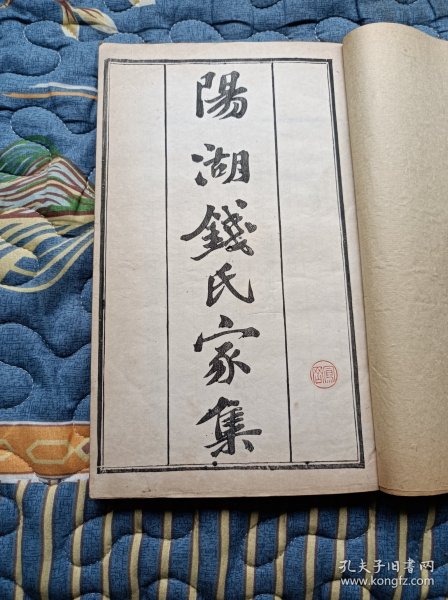 陽湖錢氏家集
孔夫子旧书网
www.kongfz.com